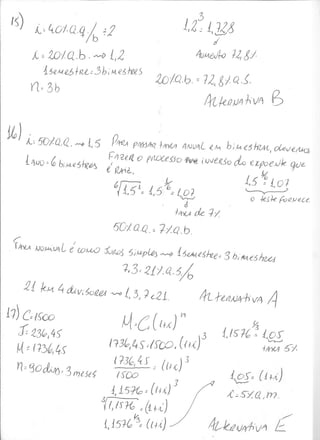 15) i=40% a.q./b ÷2
1,2³=1,728
i=20% a.b. → 1,2
Aumento 72,8%
1 semestre=3 bimestres
20% a.b. = 72,8% a.s.
n=3b
Alternativa B
16) i=50% a.a. → 1,5 Para passar taxa anual em bimestral, devemos
1 ano=6 bimestres fazer o processo inverso do expoente que
é raiz.
⁶√1,5 = 1,5^1/6 = 1,07
1,5^1/6 = 1,07
o teste fornece
taxa de 7%
50% a.a. = 7% a.b.
Taxa nominal é como juros simples → 1 semestre=3 bimestres
7.3=21% a.s/b
21 tem 4 divisores → 1, 3, 7 e 21.
Alternativa A
17) C=1500
M=C(1+i)ⁿ
J=236,45
1736,45=1500.(1+i)³
1,1576^1/3=1,05
M=1736,45
taxa 5%
1736,45/1500=(1+i)³
n=90 dias=3 meses
1,05=(1+i)
1,1576=(1+i)³
i=5% a.m.
³√1,1576=(1+i)
1,1576^1/3=(1+i)
Alternativa E